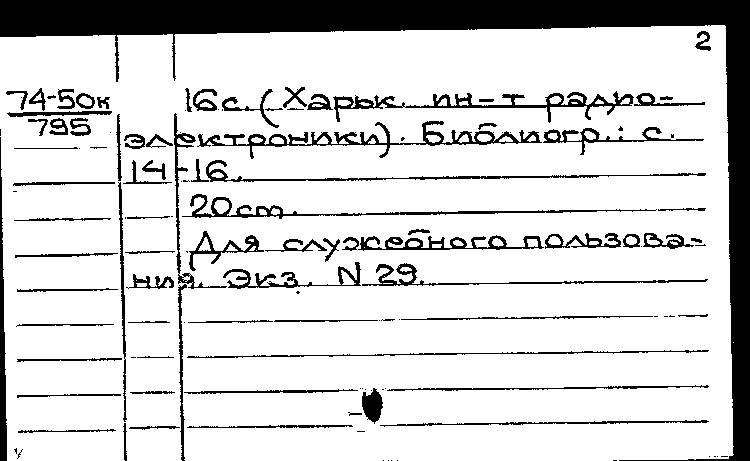 2
74-50к
795
16с. (Харьк. ин-т радио-
электроники). Библиогр.: с.
14-16.
20cm.
Для служебного пользова-
ния. Экз. N 29.